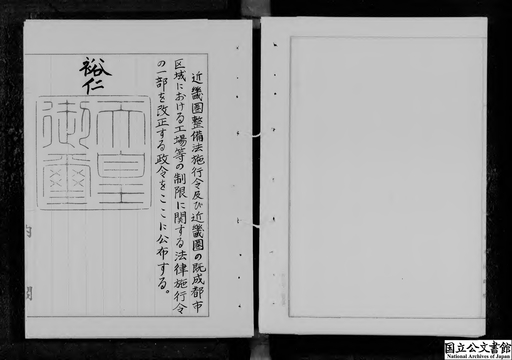 近畿圏整備法施行令及び近畿圏の既成都市
区域における工場等の制限に関する法律施行令
の一部を改正する政令をここに公布する。
裕仁
天皇
御璽
内閣
国立公文書館
National Archives of Japan